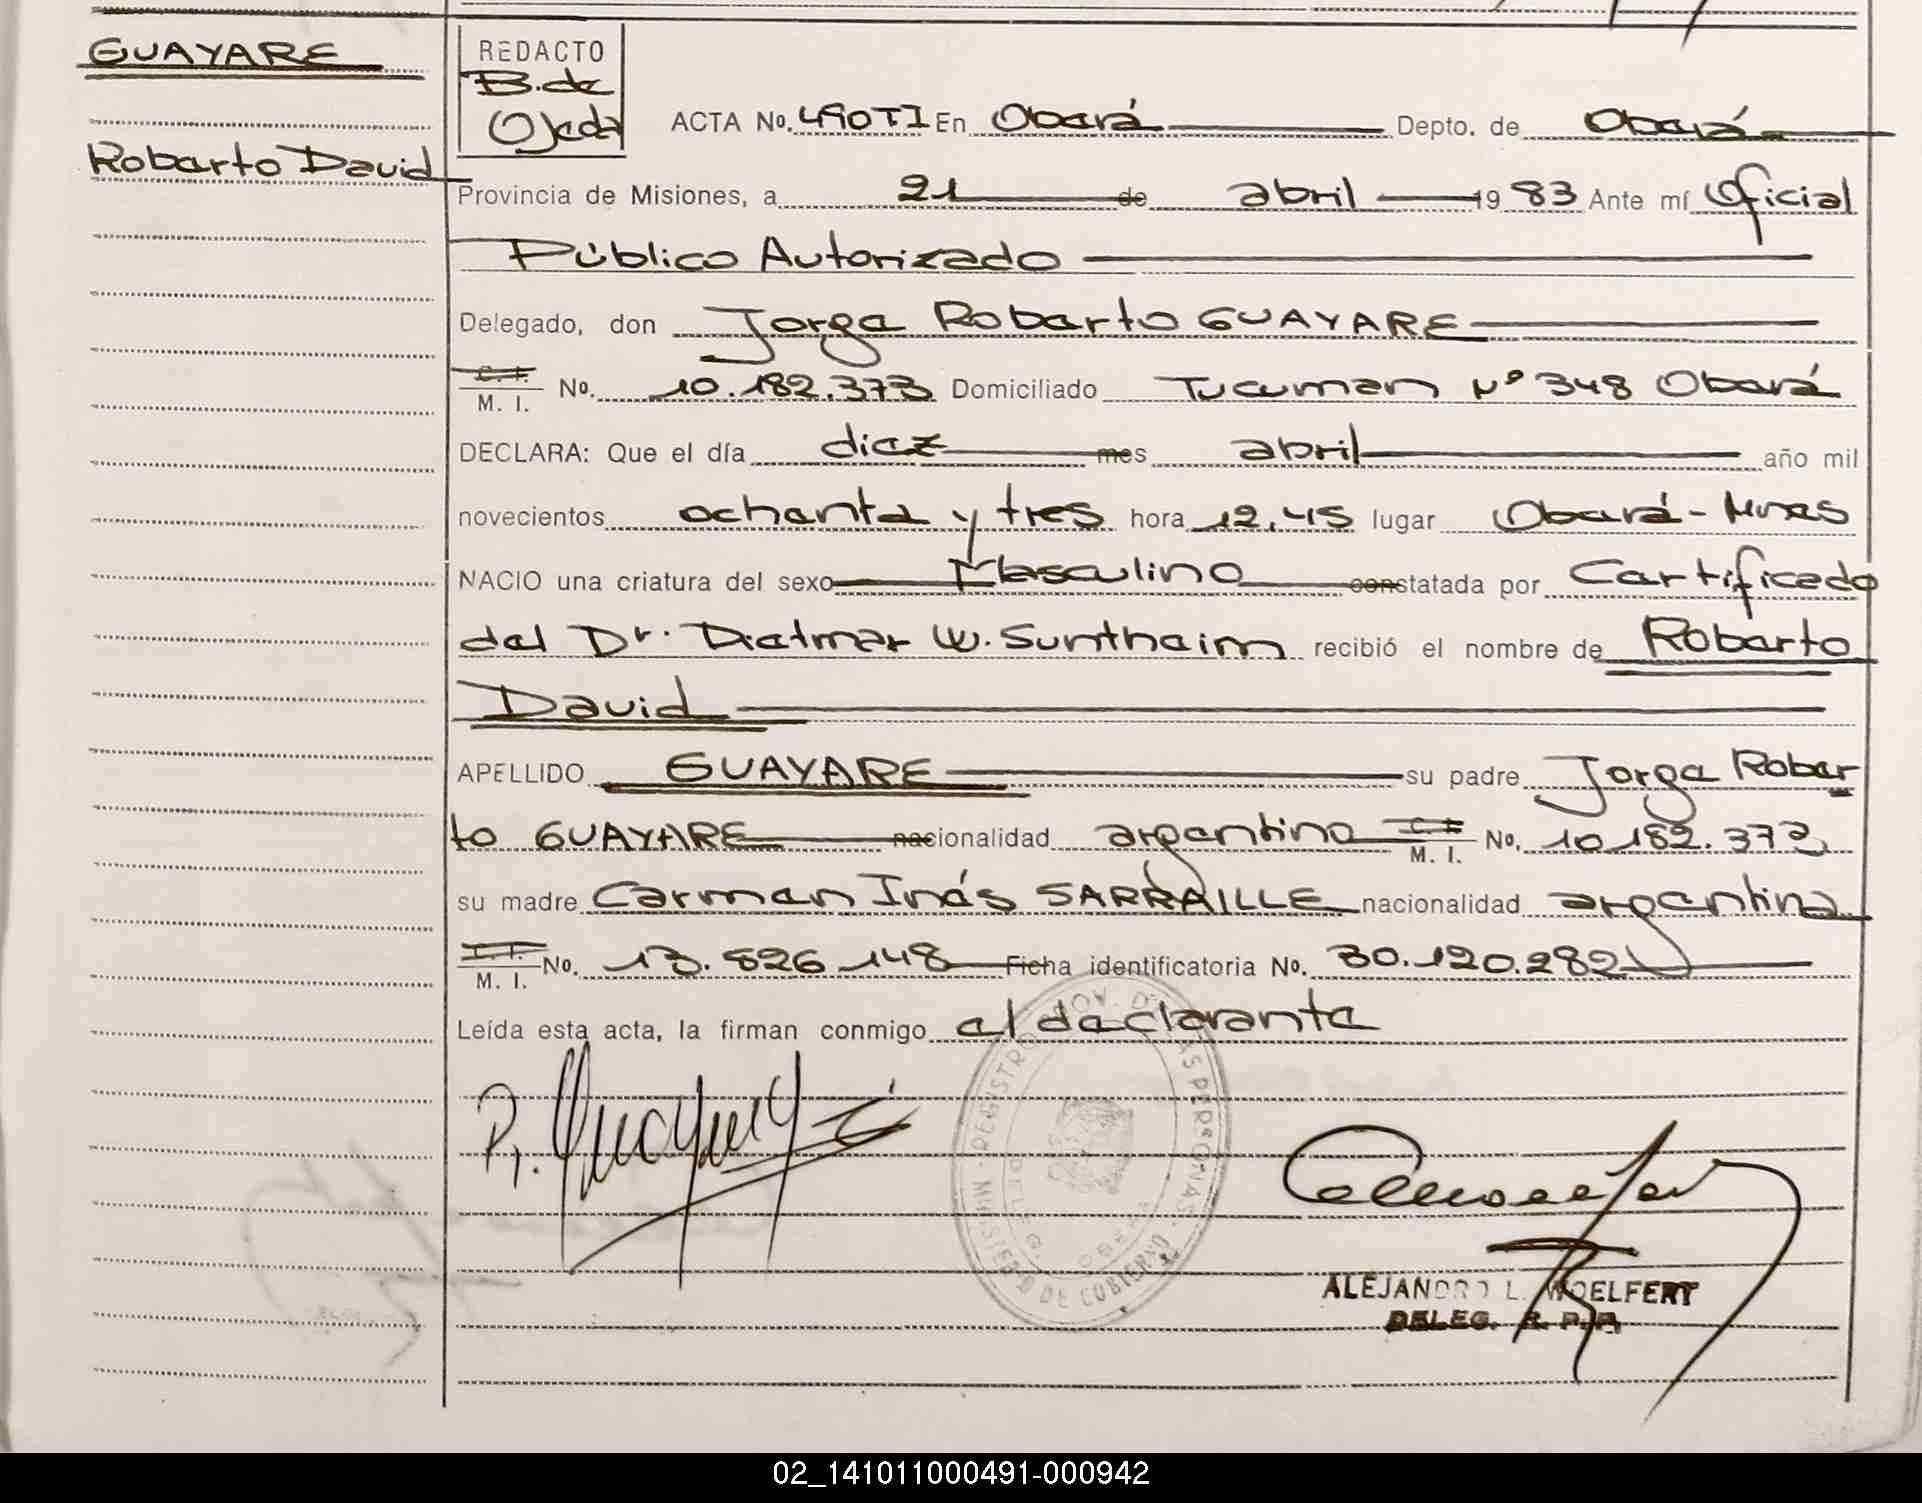 GUAYARE
Roberto David
REDACTO
B. de
Ojeda
ACTA No. 490TI En Oberá Depto. de Oberá
Provincia de Misiones, a 21 de abril 1983 Ante mí Oficial
Público Autorizado
Delegado, don Jorge Roberto GUAYARE
C. I. M. I. No. 10.182.373 Domiciliado Tucuman Nº 348 Oberá
DECLARA: Que el día diez mes abril año mil
novecientos ochenta y tres hora 12,45 lugar Oberá - Mnes
NACIO una criatura del sexo Masculino constatada por Certificado
del Dr. Dietmar W. Suntheim recibió el nombre de Roberto
David
APELLIDO GUAYARE su padre Jorge Rober
to GUAYARE nacionalidad argentino C. I. M. I. No. 10.182.373
su madre Carmen Inés SARRAILLE nacionalidad argentina
M. I. No. 13.826.148 Ficha identificatoria No. 30.120.282
Leída esta acta, la firman conmigo el declarante
MINISTERIO DE GOBIERNO
ALEJANDRO L. WOELFERT
DELEG. R. P. P.
02_141011000491-000942